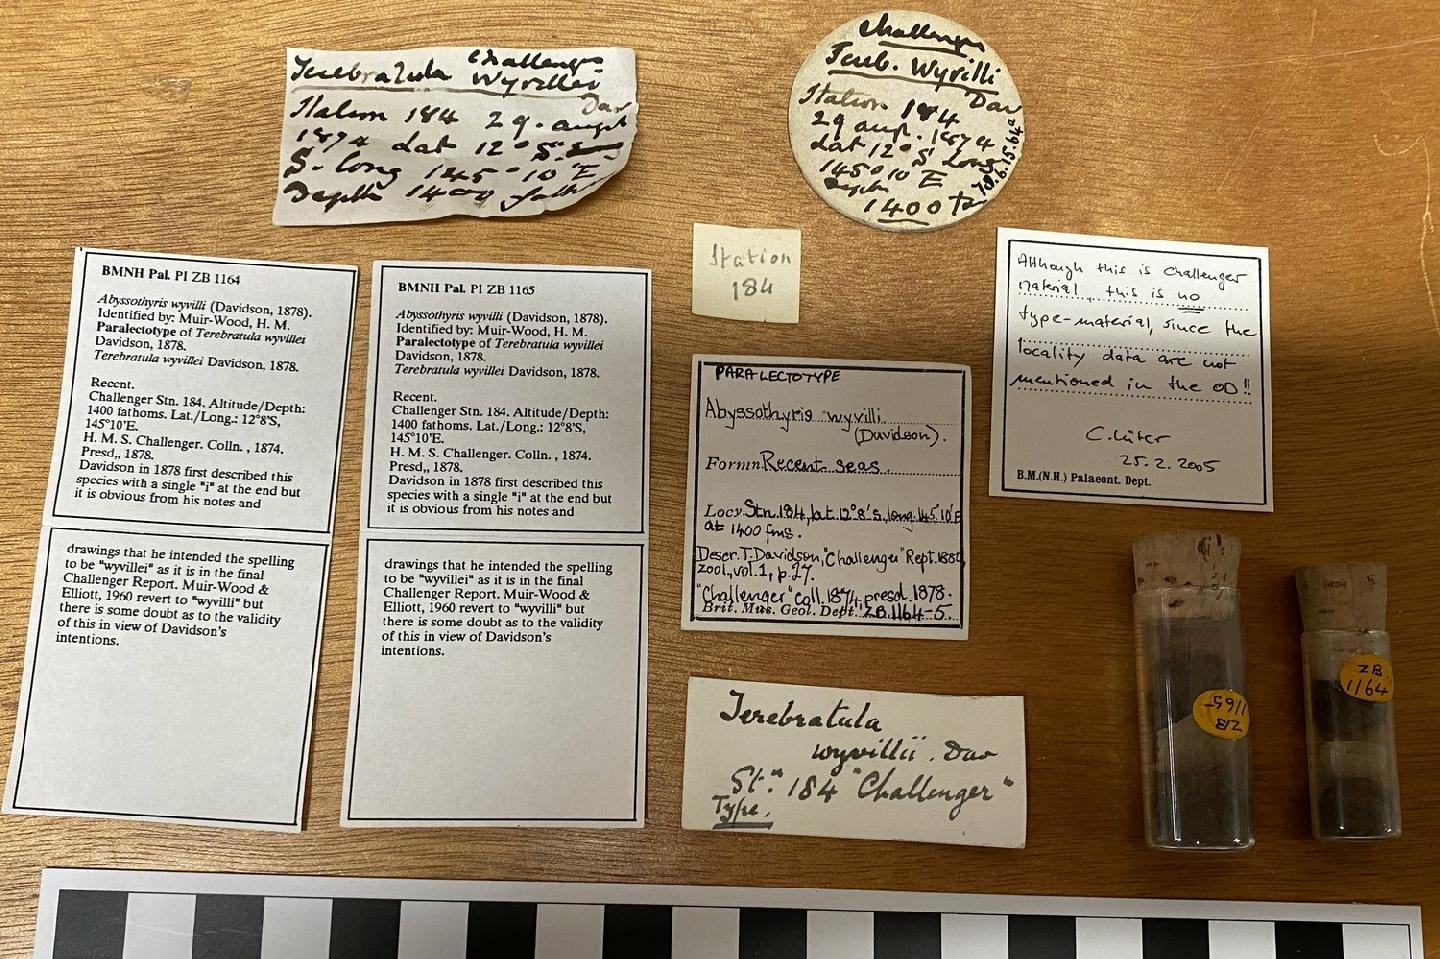 Challenger
Terebratula Wyvillei
Dav
Station 184 29. august
1874 Lat 12° 8'
S. long 145° 10' E
Depth 1400 fath
Challenger
Tereb. Wyvilli
Dav
Station 184
29 aug. 1874
Lat 12° 8' Long
145° 10 E
Depth
1400 fa
78.6.15.64a
Station
184
BMNH Pal. PI ZB 1164
Abyssothyris wyvilli (Davidson, 1878).
Identified by: Muir-Wood, H. M.
Paralectotype of Terebratula wyvillei
Davidson, 1878.
Terebratula wyvillei Davidson, 1878.
Recent.
Challenger Stn. 184. Altitude/Depth:
1400 fathoms. Lat./Long.: 12°8'S,
145°10'E.
H. M. S. Challenger. Colln. , 1874.
Presd,, 1878.
Davidson in 1878 first described this
species with a single "i" at the end but
it is obvious from his notes and
drawings that he intended the spelling
to be "wyvillei" as it is in the final
Challenger Report. Muir-Wood &
Elliott, 1960 revert to "wyvilli" but
there is some doubt as to the validity
of this in view of Davidson's
intentions.
BMNH Pal. PI ZB 1165
Abyssothyris wyvilli (Davidson, 1878).
Identified by: Muir-Wood, H. M.
Paralectotype of Terebratula wyvillei
Davidson, 1878.
Terebratula wyvillei Davidson, 1878.
Recent.
Challenger Stn. 184. Altitude/Depth:
1400 fathoms. Lat./Long.: 12°8'S,
145°10'E.
H. M. S. Challenger. Colln. , 1874.
Presd,, 1878.
Davidson in 1878 first described this
species with a single "i" at the end but
it is obvious from his notes and
drawings that he intended the spelling
to be "wyvillei" as it is in the final
Challenger Report. Muir-Wood &
Elliott, 1960 revert to "wyvilli" but
there is some doubt as to the validity
of this in view of Davidson's
intentions.
PARALECTOTYPE
Abyssothyris wyvilli
(Davidson).
Formn Recent seas
Locy Stn. 184, lat. 12°8's, long. 145°10'E
at 1400 fms.
Descr. T. Davidson, "Challenger" Rept. 1880,
zool., vol. 1, p. 27.
"Challenger" coll. 1874, presd. 1878.
Brit. Mus. Geol. Dept. ZB.1164-5.
Although this is Challenger
material, this is no
type-material, since the
locality data are not
mentioned in the OD!!
C. Lüter
25.2.2005
B.M.(N.H.) Palaeont. Dept.
Terebratula
wyvillii. Dav
Stn. 184 "Challenger"
Type.
ZB
1165
ZB
1164